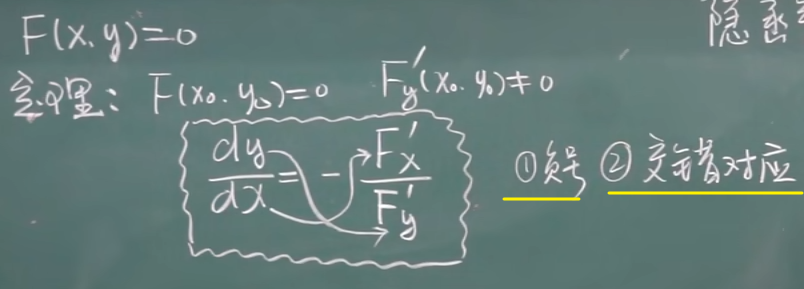 隐函
F(x,y)=0
定理: F(x₀,y₀)=0 F'y(x₀,y₀)≠0
dy/dx = - F'x/F'y ①负号 ②交错对应